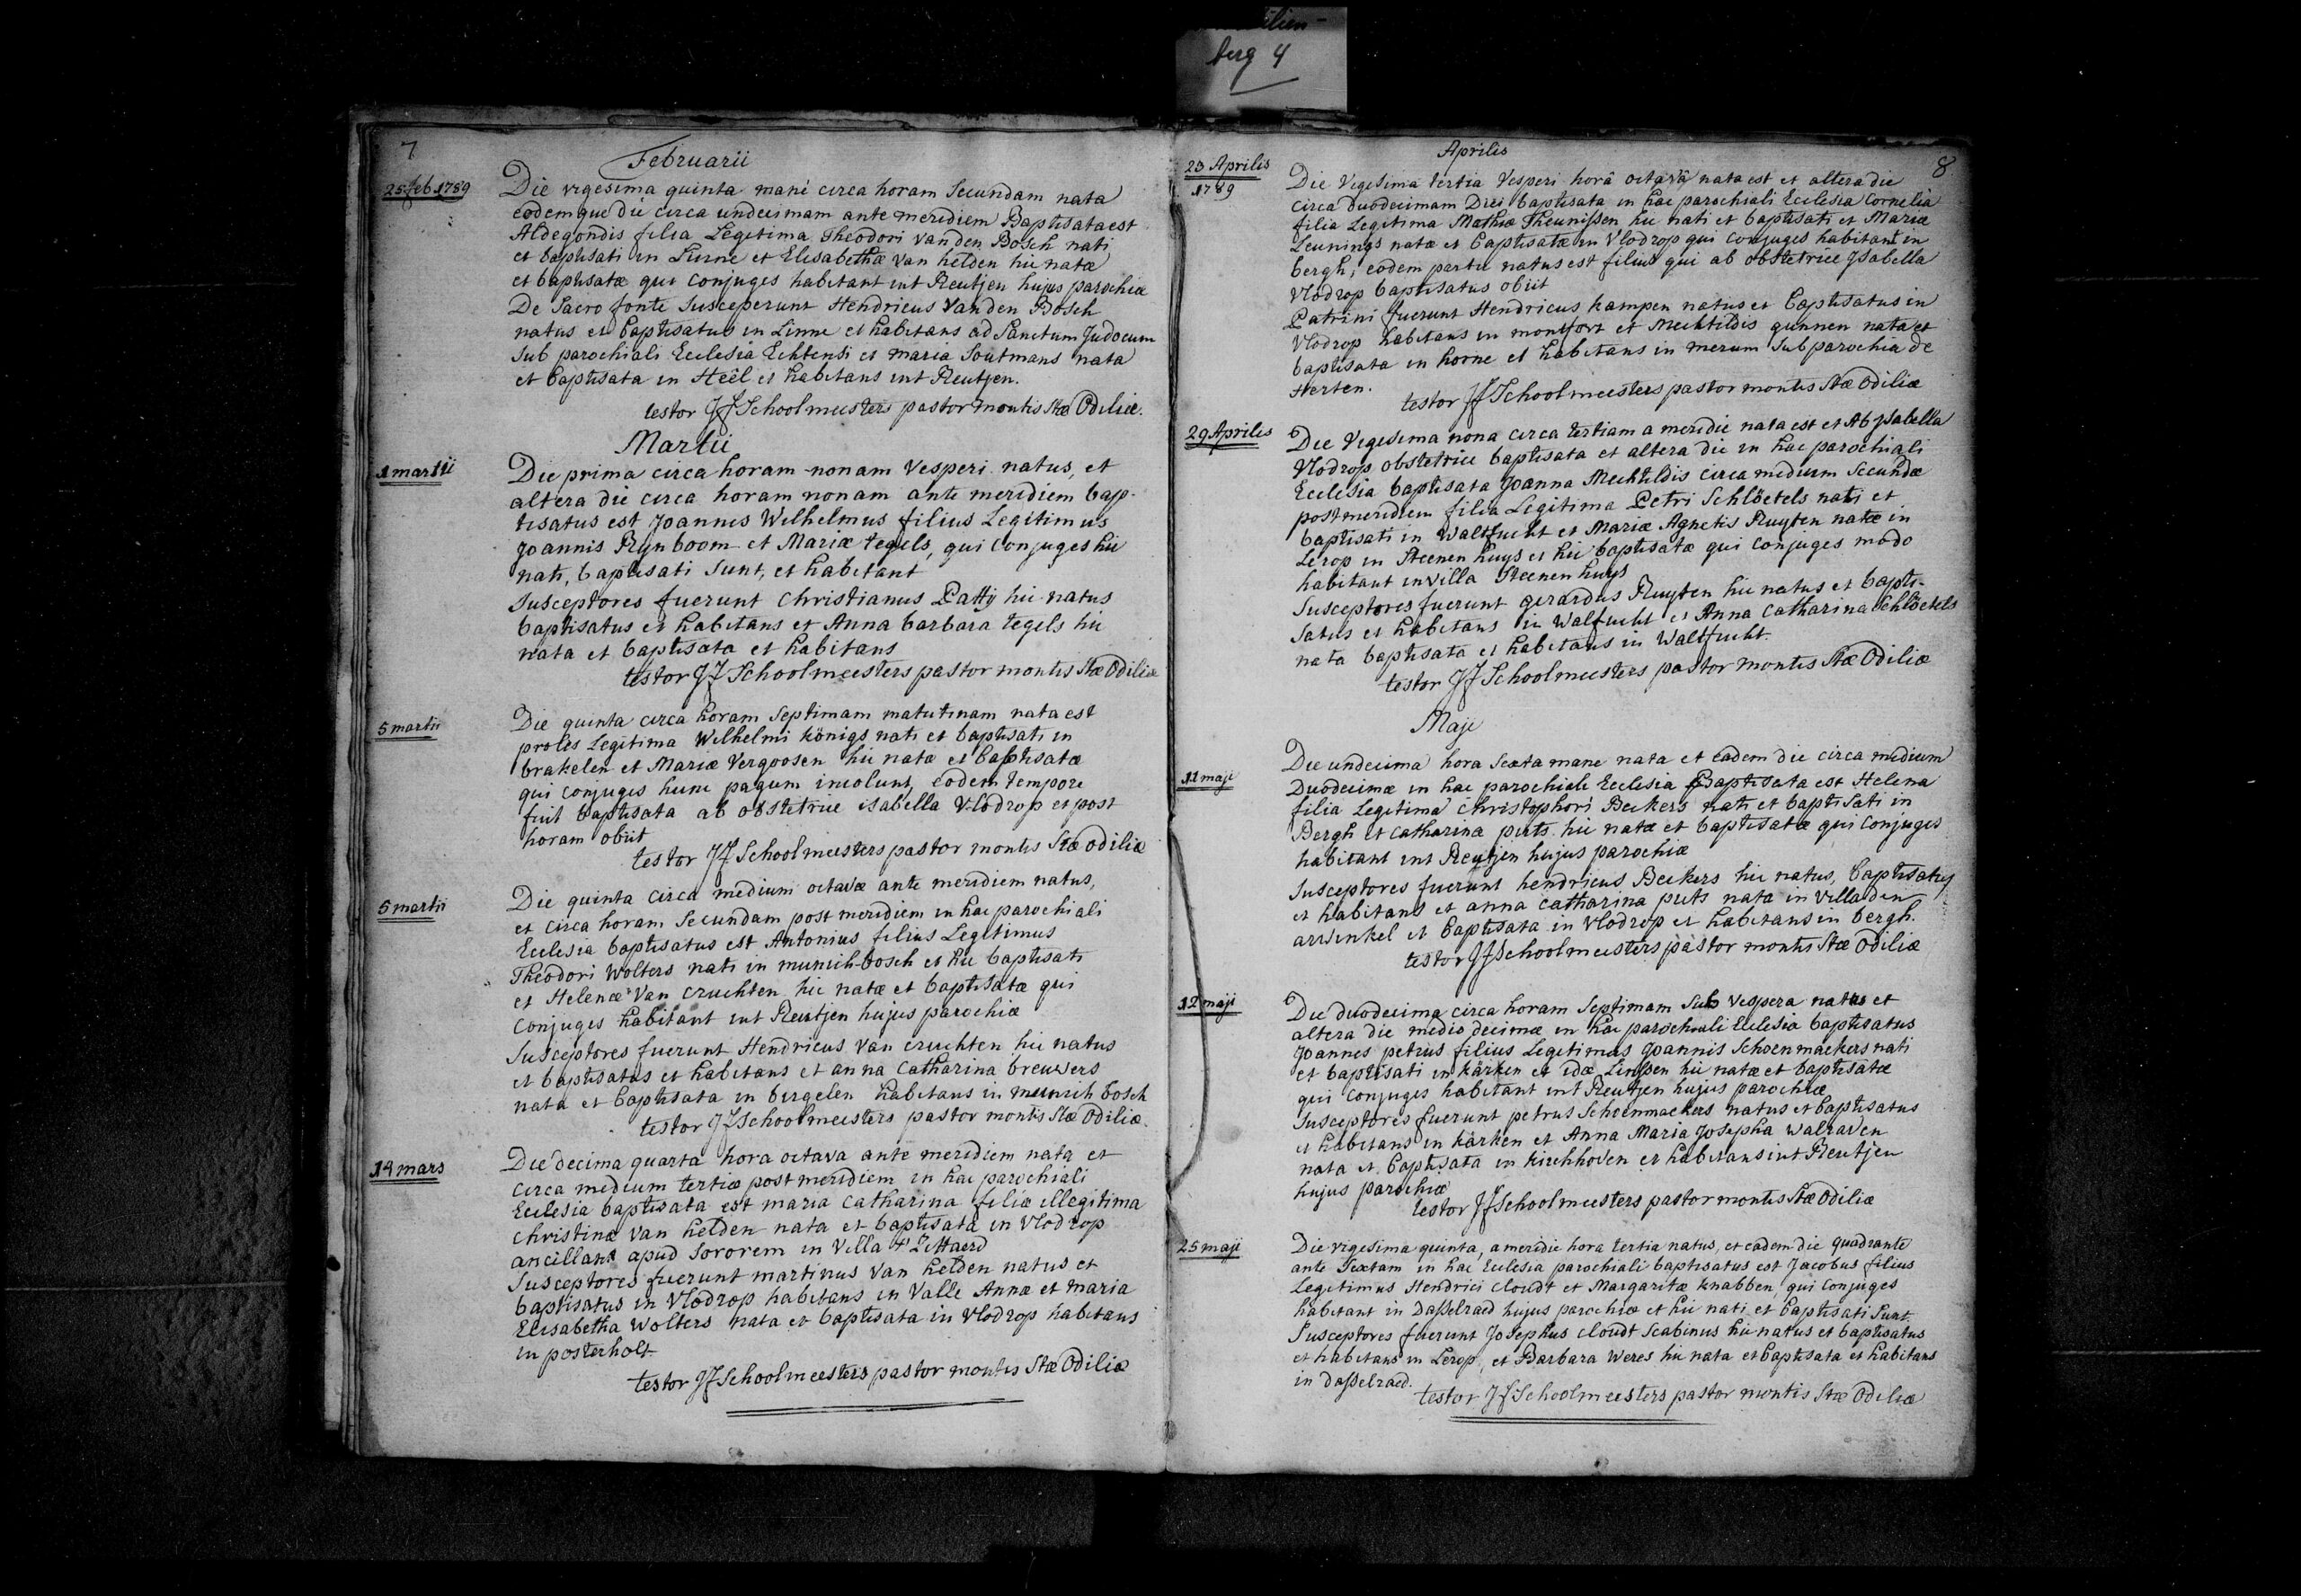 berg 4
7
Februarii
25 feb 1789
Die vigesima quinta mané circa horam Secundam nata
eodemque die circa undecimam ante meridiem Baptisata est
Aldegondis filia Legitima Theodori van den Bosch nati
et baptisati in Linne et Elisabethæ van helden hic natæ
et baptisatæ qui conjuges habitant int Reutjen hujus parochiæ
De Sacro fonte Susceperunt Hendricus Van den Bosch
natus et baptisatus in Linne et habitans ad Sanctum Judocum
Sub parochiali Ecclesia Echtensi et maria Soutmans nata
et baptisata in Heël et habitans int Reutjen.
testor JJ Schoolmeesters pastor montis Stæ Odiliæ.
Martii
1 martii
Die prima circa horam nonam Vesperi natus, et
altera die circa horam nonam ante meridiem bap-
tisatus est Joannes Wilhelmus filius Legitimus
Joannis Rynboom et Mariæ tegels, qui Conjuges hic
nati, baptisati Sunt, et habitant
Susceptores fuerunt Christianus Pattij hic natus
baptisatus et habitans et Anna barbara tegels hic
nata et baptisata et habitans
testor JJ Schoolmeesters pastor montis Stæ Odiliæ
5 martii
Die quinta circa horam Septimam matutinam nata est
proles Legitima Wilhelmi königs nati et baptisati in
brakelen et Mariæ Vergoosen hic natæ et baptisatæ
qui conjuges hunc pagum incolunt, eodem tempore
fuit baptisata ab obstetrice isabella Vlodrop et post
horam obiit
testor JJ Schoolmeesters pastor montis Stæ Odiliæ
5 martii
Die quinta circa medium octavæ ante meridiem natus,
et circa horam Secundam post meridiem in hac parochiali
Ecclesia baptisatus est Antonius filius Legitimus
Theodori Wolters nati in munich-bosch et hic baptisati
et Helenæ Van Cruchten hic natæ et baptisatæ qui
Conjuges habitant int Reutjen hujus parochiæ
Susceptores fuerunt Hendricus Van cruchten hic natus
et baptisatus et habitans et anna Catharina breuwers
nata et baptisata in birgelen habitans in munich bosch
testor JJ Schoolmeesters pastor montis Stæ Odiliæ.
14 mars
Die decima quarta hora octava ante meridiem nata et
Circa medium tertiæ post meridiem in hac parochiali
Ecclesia baptisata est maria Catharina filia illegitima
Christinæ Van helden nata et baptisata in Vlodrop
ancillans apud Sororem in Villa t' Zittaerd
Susceptores fuerunt martinus Van helden natus et
baptisatus in Vlodrop habitans in Valle Annæ et maria
Elisabetha Wolters nata et baptisata in Vlodrop habitans
in posterholt
testor JJ Schoolmeesters pastor montis Stæ Odiliæ
8
Aprilis
23 Aprilis
1789
Die Vigesima tertia Vesperi horâ octavâ nata est et altera die
Circa duodecimam Diei baptisata in hac parochiali Ecclesia Cornelia
filia Legitima Mathiæ Theunissen hic nati et baptisati et Mariæ
Leunings natæ et baptisatæ in Vlodrop qui Conjuges habitant in
bergh, eodem partu natus est filius qui ab obstetrice Jsabella
Vlodrop baptisatus obiit
Patrini fuerunt Hendricus kampen natus et baptisatus in
Vlodrop habitans in montfort et Mechtildis gunnen nata et
baptisata in horne et habitans in merum Sub parochia de
Herten.
testor JJ Schoolmeesters pastor montis Stæ Odiliæ
29 Aprilis
Die Vigesima nona circa tertiam a meridie nata est et Ab Jsabella
Vlodrop obstetrice baptisata et altera die in hac parochiali
Ecclesia baptisata Joanna Mechtildis circa medium Secundæ
post meridiem filia Legitima Petri Schlöetels nati et
baptisati in Waltfucht et Mariæ Agnetis Ruyten natæ in
Lerop in Steenen huys et hic baptisatæ qui Conjuges modo
habitant in villa Steenen huys
Susceptores fuerunt gerardus Ruyten hic natus et bapti-
satus et habitans in Walfucht et Anna Catharina Schlöetels
nata baptisata et habitans in Waltfucht.
testor JJ Schoolmeesters pastor montis Stæ Odiliæ
Maji
11 maji
Die undecima hora Sexta mane nata et eadem die circa medium
Duodecimæ in hac parochiali Ecclesia Baptisata est Helena
filia Legitima Christophori Beckers nati et baptisati in
Bergh et Catharina puts hic natæ et baptisatæ qui Conjuges
habitant int Reutjen hujus parochiæ
Susceptores fuerunt hendricus Beckers hic natus, baptisatus
et habitans et anna Catharina puts nata in Villa den
arwinkel et baptisata in Vlodrop et habitans in bergh.
testor JJ Schoolmeesters pastor montis Stæ Odiliæ
12 maji
Die duodecima circa horam Septimam Sub Vespera natus et
altera die medio decimæ in hac parochiali Ecclesia baptisatus
Joannes petrus filius Legitimus Joannis Schoenmaekers nati
et baptisati in kärken et idæ Linssen hic natæ et baptisatæ
qui Conjuges habitant int Reutjen hujus parochiæ
Susceptores fuerunt petrus Schoenmaekers natus et baptisatus
et habitans in kärken et Anna Maria Josepha Walraven
nata et baptisata in kirchhoven et habitans int Reutjen
hujus parochiæ
testor JJ Schoolmeesters pastor montis Stæ Odiliæ
25 maji
Die vigesima quinta, a meridie hora tertia natus, et eadem die quadrante
ante Sextam in hac Ecclesia parochiali baptisatus est Jacobus filius
Legitimus Hendrici Cloudt et Margaritæ knabben, qui Conjuges
habitant in Dasselraed hujus parochiæ et hic nati et baptisati Sunt.
Susceptores fuerunt Josephus Cloudt Scabinus hic natus et baptisatus
et habitans in Lerop, et Barbara Weres hic nata et baptisata et habitans
in dasselraed.
testor JJ Schoolmeesters pastor montis Stæ Odiliæ